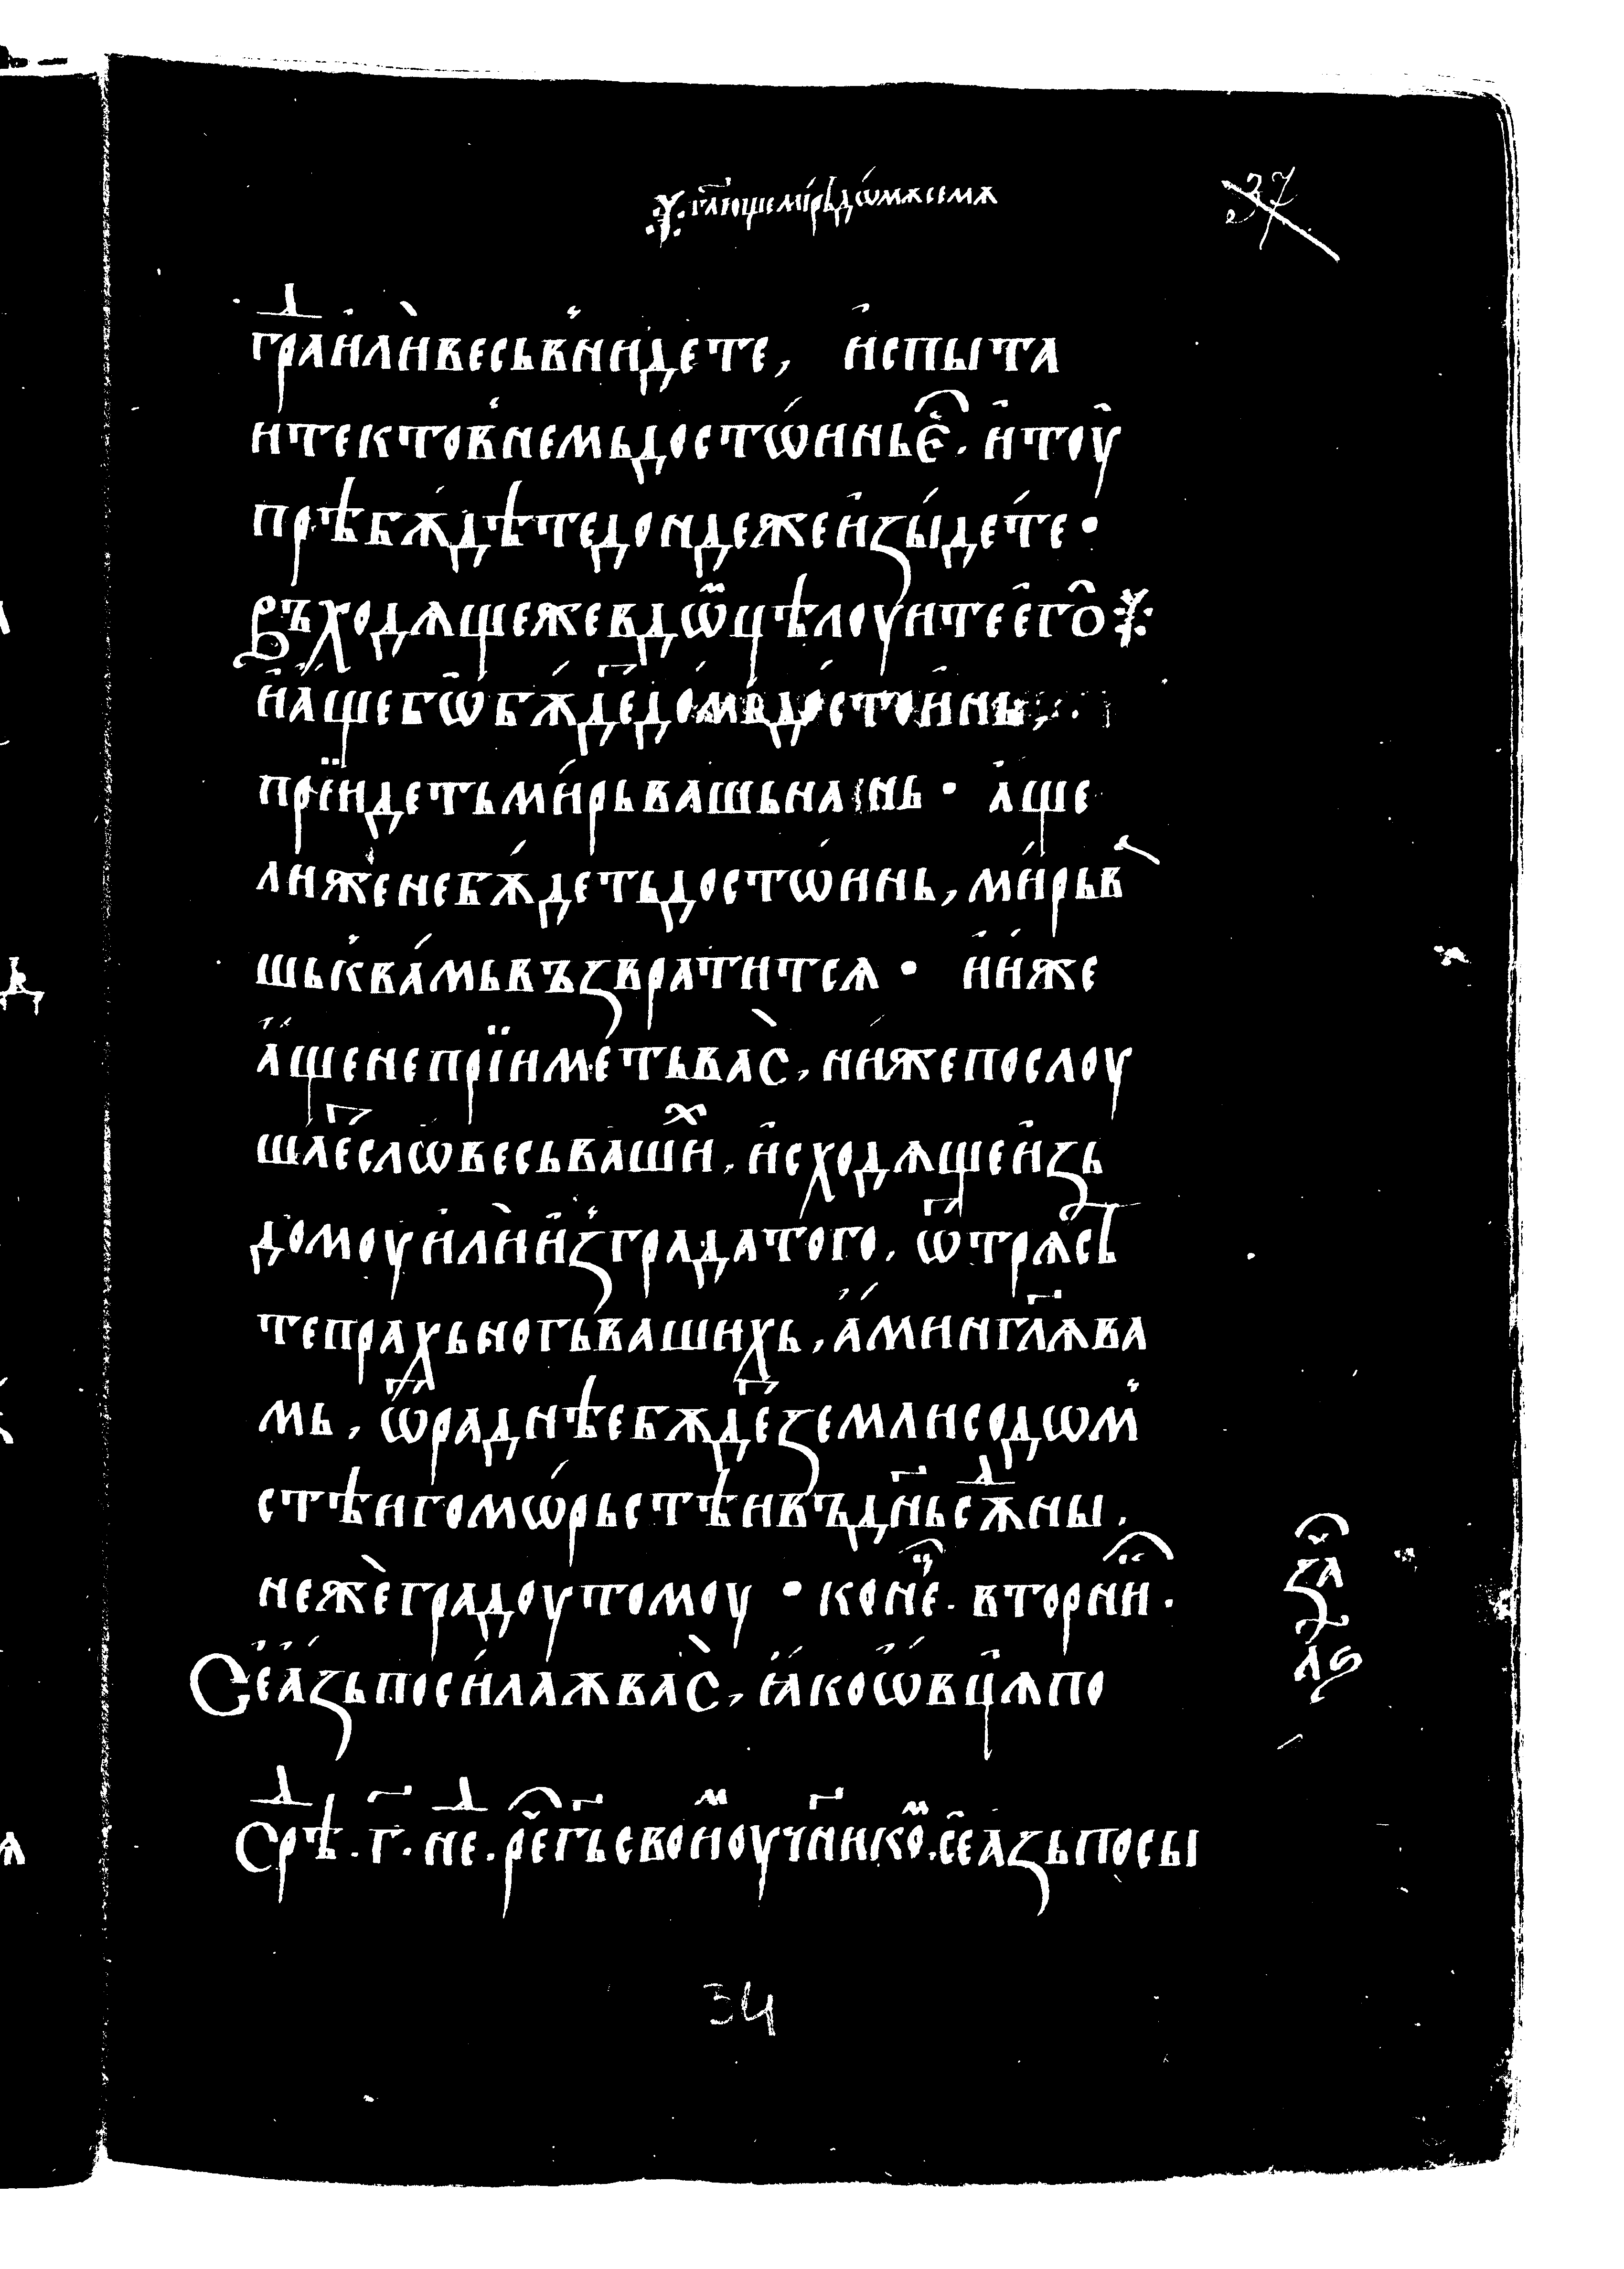 гл҃юще ми́рь дѡ́мѫ семѫ
37
граⷣ и҆лѝ весь в̾ни́дете, и҆спыта
ите кто в̾ немь досто́ѡинь е҆̑. и҆ тоу̑
прѣбѫ́дѣте дондеже и҆зы́де́те·
Въходѧще же в дѡⷨ цѣлоуите е҆го̑
и҆ а́ще бѡ̑ бѫ́деⷮ до́мь до́стоинь,
прїи́деть ми́рь вашь на нь · а҆ще
ли же не бѫ́деть достѡ́инь, ми́рь в̀
шь к вáмь възвратитсѧ · и҆ и́же
а҆́ще не прїиме́ть ва̀с, ни́же послоу
шаеⷮ слѡвесь вашиⷯ, и҆сходѧще и҆зь
домоу и҆лѝ и҆з̾ града того, ѿтрѧсѣ
те прахь ногь вашихь, а҆́мин гл҃ѧ ва
мь, ѿраднѣе бѫдеⷮ земли содѡм̾
стѣи гомѡ́рьстѣи въ дн҃ь сѫⷣны.
нежѐ градоу томоу · коне̑ц. вторнїи.
Се҆ а҆́зь поси́лаѫ ва̀с, ꙗ҆́ко ѡ҆́вцѧ по
за̑
лѕ
Срѣⷣ. г҃. неⷣ. рече̑ г҃ь своиⷨ оуч҃никоⷨ. се҆ азь посы
34